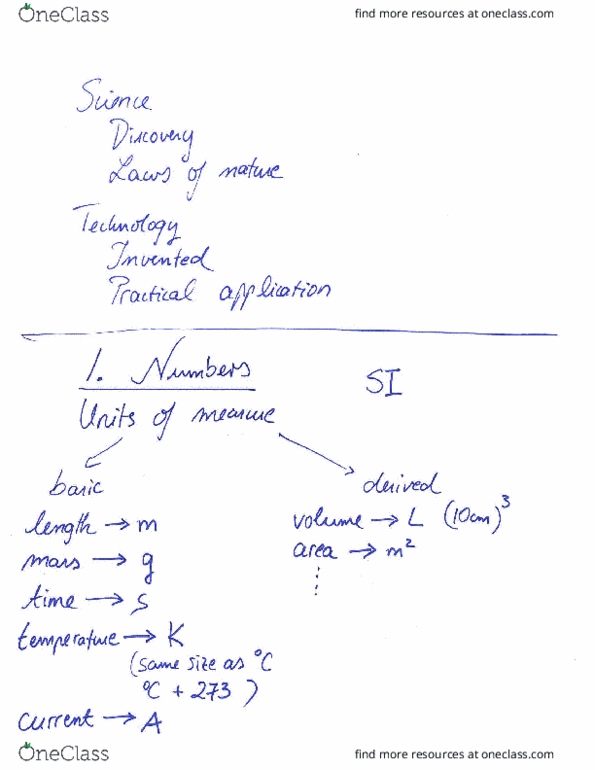 OneClass find more resources at oneclass.com
Science
Discovery
Laws of nature
Technology
Invented
Practical application
1. Numbers SI
Units of measure
basic derived
length → m volume → L (10cm)³
mass → g area → m²
time → s
temperature → K
(same size as °C
°C + 273 )
current → A
OneClass find more resources at oneclass.com